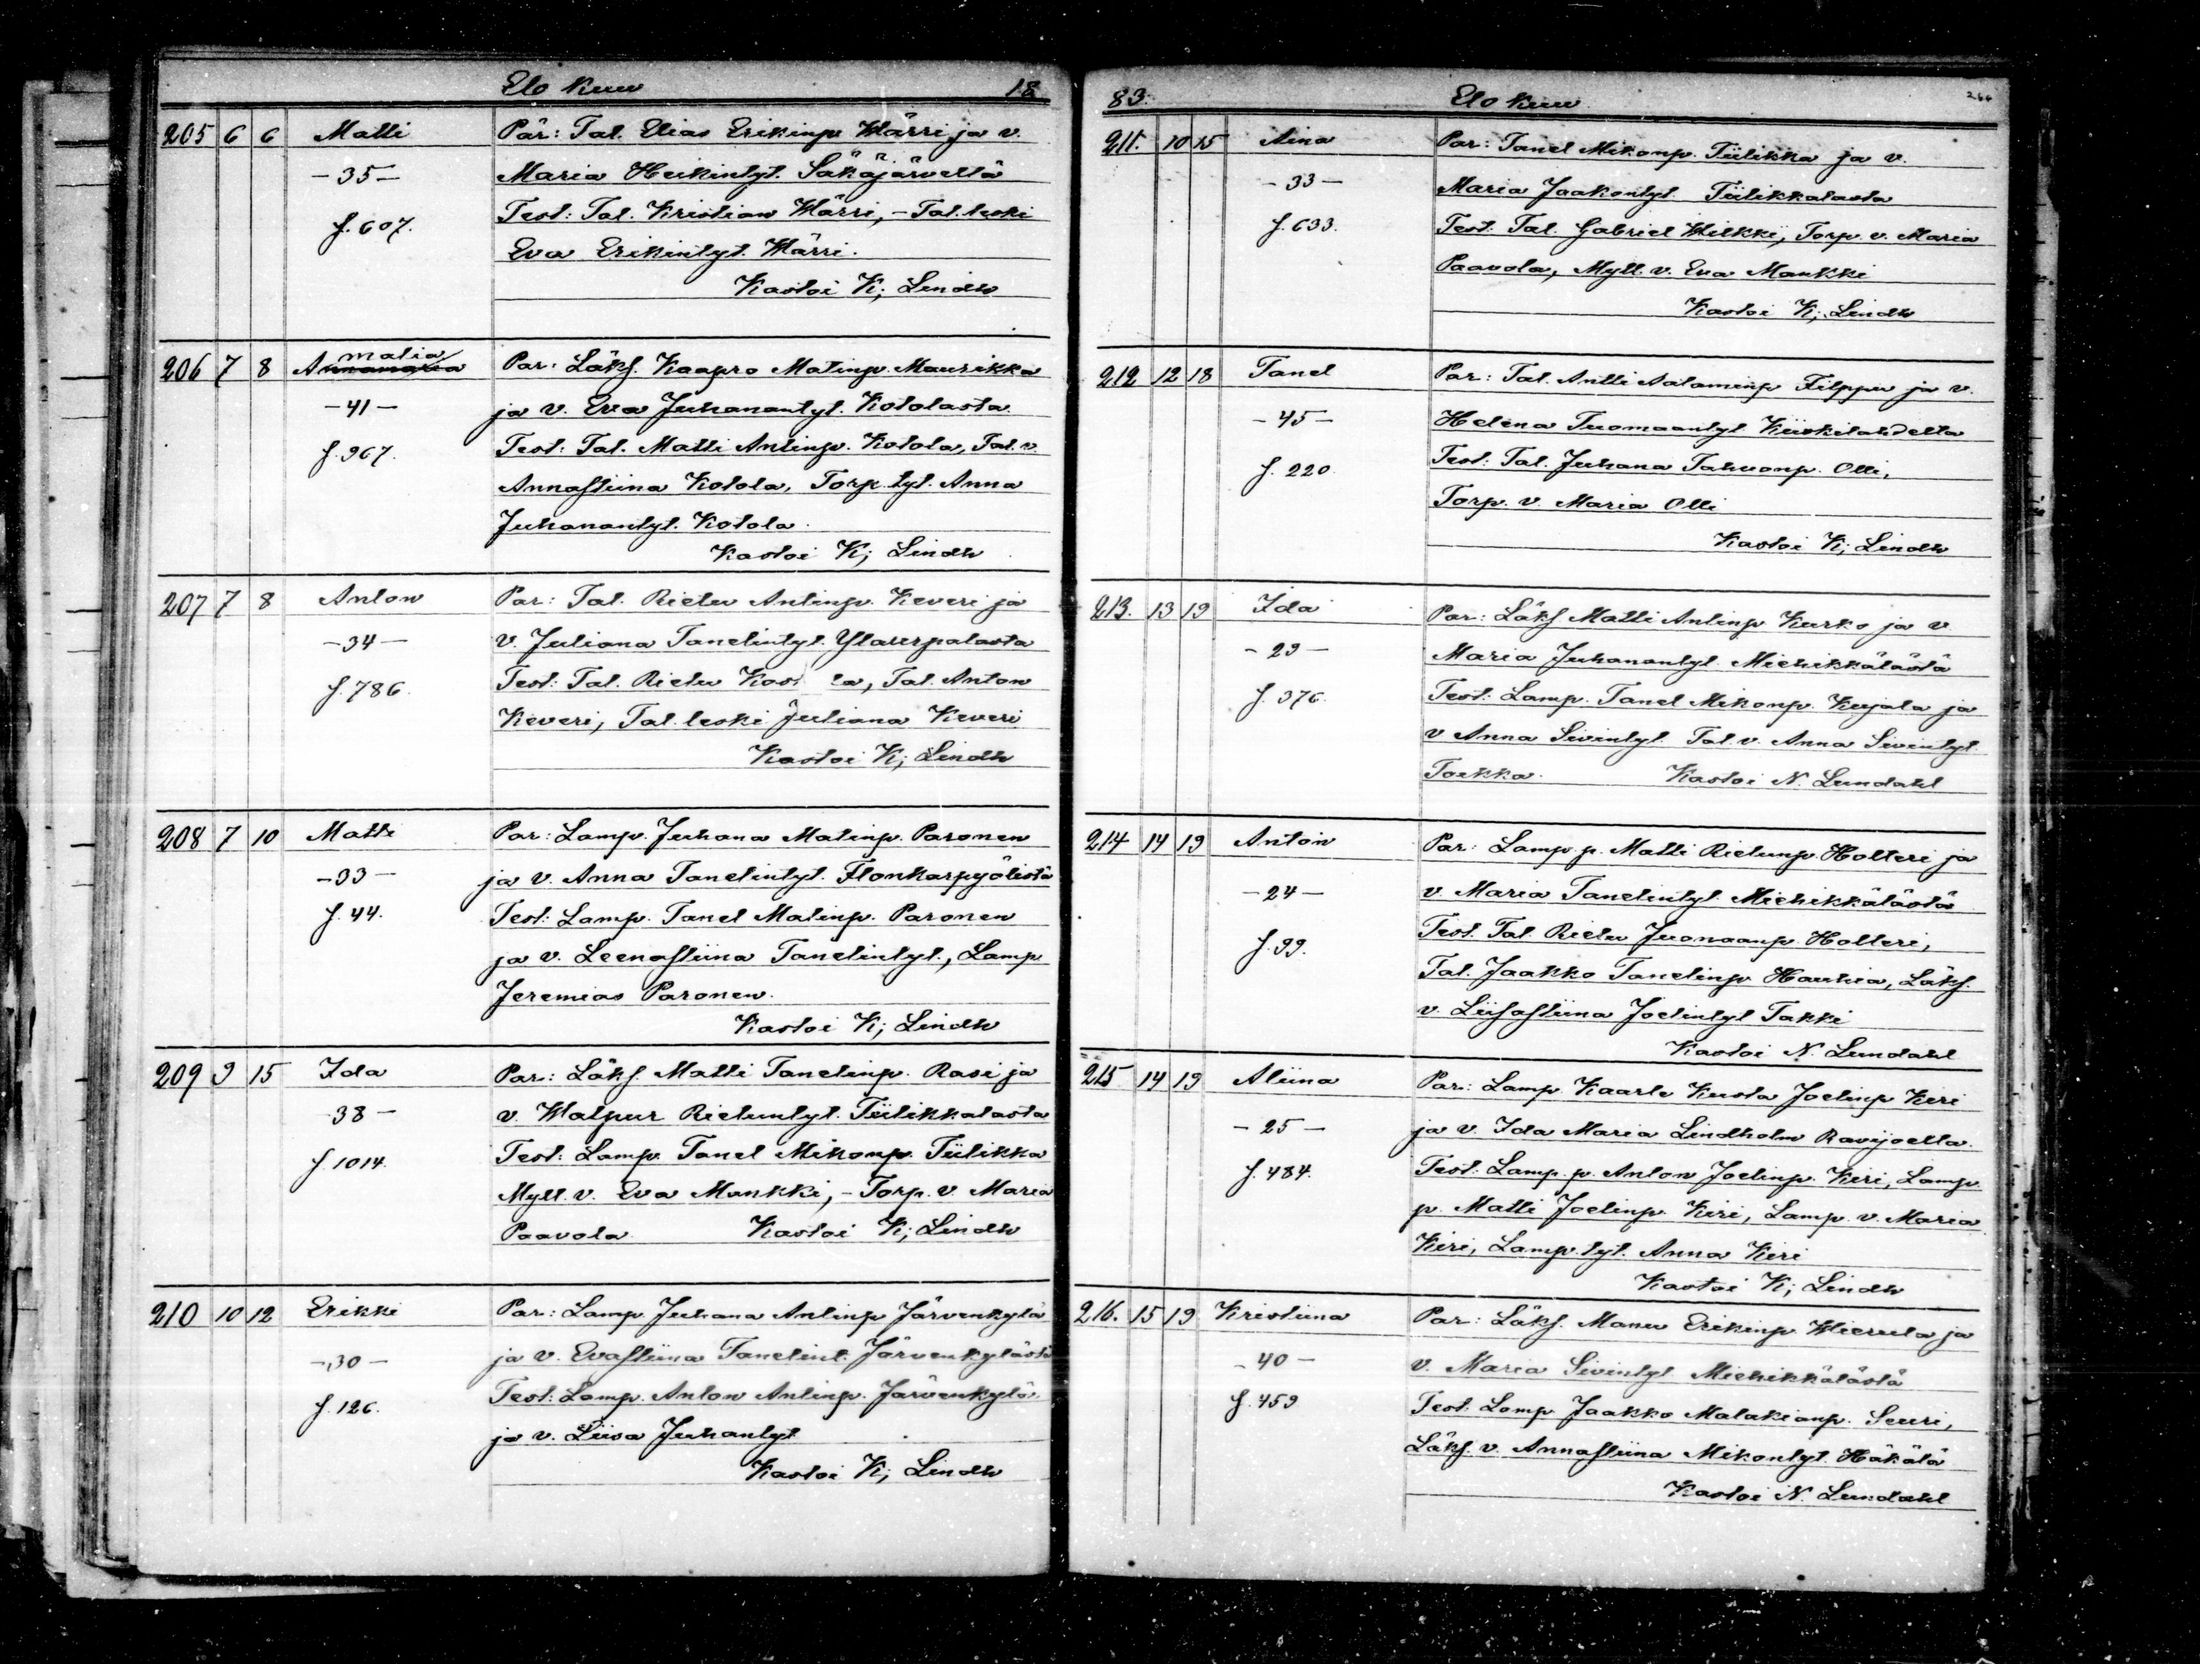 Elo kuu 18
205 6 6 Matti Par: Tal. Elias Erikinp Wärri ja v.
-35- Maria Heikintyt. Säkäjärveltä
f. 607. Test: Tal. Kristian Wärri, - Tal. leski
Eva Erikintyt. Wärri.
Kastoi K; Lindh
206 7 8 Amalia Par: Läks. Kaapro Matinp. Maurikka
-41- ja v. Eva Juhanantyt. Kotolasta
f. 967. Test: Tal. Matti Antinp. Kotola, Tal. v.
Annastiina Kotola, Torp. tyt. Anna
Juhanantyt. Kotola.
Kastoi K; Lindh
207 7 8 Anton Par: Tal. Rietu Antinp. Keveri ja
-34- v. Juliana Tanelintyt.
f. 786. Test: Tal. Rietu Tal. Anton
Keveri, Tal. leski Juliana Keveri
Kastoi K; Lindh
208 7 10 Matti Par: Lamp. Juhana Matinp. Paronen
-33- ja v. Anna Tanelintyt.
f. 44. Test: Lamp. Tanel Matinp. Paronen
ja v. Leenastiina Tanelintyt., Lamp
Jeremias Paronen.
Kastoi K; Lindh
209 9 15 Ida Par: Läks. Matti Tanelinp. Rasi ja
38- v. Walpur Rietuntyt. Tiilikkalasta
f 1014. Test: Lamp. Tanel Mikonp. Tiilikka
Myll. v. Eva Mankki, - Torp. v. Maria
Paavola. Kastoi K; Lindh
210 10 12 Erikki Par: Lamp Juhana Antinp Järvenkylä
-30- ja v. Evastiina Tanelint. Järvenkylästä
f. 126. Test: Lamp. Anton Antinp. Järvenkylä
ja v. Liisa Juhantyt
Kastoi K; Lindh
83. Elo kuu 266
211. 10 15 Aina Par: Tanel Mikonp. Tiilikka ja v.
-33- Maria Jaakontyt. Tiilikkalasta
f. 633. Test. Tal. Gabriel Wilkki, Torp. v. Maria
Paavola, Myll. v. Eva Mankki
Kastoi K; Lindh
212 12 18 Tanel Par: Tal. Antti Aataminp Filppu ja v.
-45- Helena Tuomaantyt Kiiskilahdelta
f. 220. Test: Tal. Juhana Tahvonp. Olli,
Torp. v. Maria Olli
Kastoi K; Lindh
213. 13 19 Ida Par: Läks Matti Antinp Kurko ja v
-29- Maria Juhanantyt. Miehikkälästä
f. 376. Test: Lamp. Tanel Mikonp. Kujala ja
v Anna Sivintyt Tal. v. Anna Sivintyt
Toikka. Kastoi N. Lundahl
214 14 19 Anton Par: Lamp p. Matti Rietunp. Holteri ja
-24- v Maria Tanelintyt Miehikkälästä
f. 99. Test. Tal. Rietu Juonaanp. Holteri,
Tal. Jaakko Tanelinp. Haukia, Läks.
v. Liisastiina Joelintyt Takki
Kastoi N. Lundahl
215 14 19 Aliina Par: Lamp Kaarle Kusta Joelinp Kiri
-25- ja v. Ida Maria Lindholm Ravijoelta.
f. 484. Test: Lamp. p. Anton Joelinp. Kiri, Lamp
p. Matti Joelinp Kiri, Lamp. v. Maria
Kiri, Lamp. tyt. Anna Kiri
Kastoi K; Lindh
216. 15 19 Kristiina Par: Läks. Manu Erikinp Wierula ja
-40- v. Maria Sivintyt Miehikkälästä
f. 459 Test. Lamp Jaakko Malakianp. Suuri,
Läks. v. Annastiina Mikontyt. Häkälä
Kastoi N. Lundahl